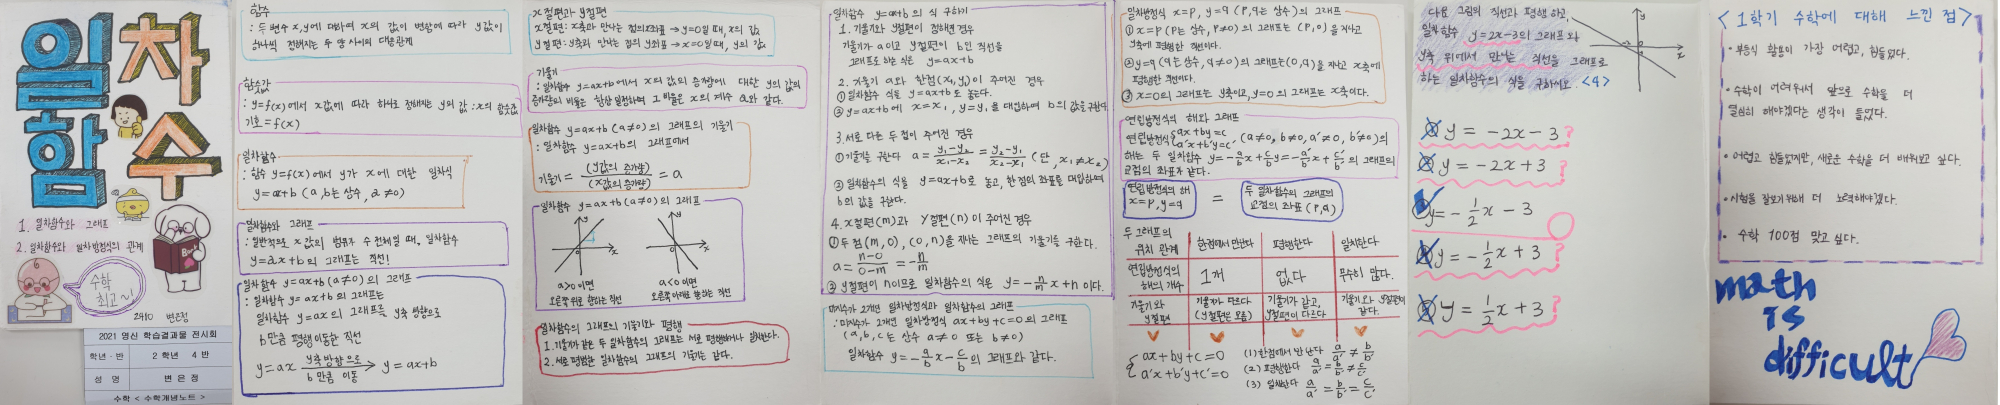 일차
함수
1. 일차함수와 그래프
2. 일차함수와 일차방정식의 관계
수학
최고~!
2410 변은정
2021 영신 학습결과물 전시회
학년 · 반 2 학년 4 반
성 명 변 은 정
수학 < 수학개념노트 >
함수
: 두 변수 x, y에 대하여 x의 값이 변함에 따라 y값이
하나씩 정해지는 두 양 사이의 대응관계
함숫값
: y=f(x)에서 x값에 따라 하나로 정해지는 y의 값 : x의 함숫값
기호 = f(x)
일차함수
: 함수 y=f(x)에서 y가 x에 대한 일차식
y=ax+b (a, b는 상수, a≠0)
일차함수와 그래프
: 일반적으로 x값의 범위가 수 전체일 때, 일차함수
y=ax+b의 그래프는 직선!
일차함수 y=ax+b (a≠0)의 그래프
: 일차함수 y=ax+b의 그래프는
일차함수 y=ax의 그래프를 y축 방향으로
b만큼 평행이동한 직선
y=ax y축 방향으로 b만큼 이동 → y=ax+b
x절편과 y절편
x절편: x축과 만나는 점의 x좌표 → y=0일 때, x의 값
y절편: y축과 만나는 점의 y좌표 → x=0일 때, y의 값
기울기
: 일차함수 y=ax+b에서 x의 값의 증가량에 대한 y의 값의
증가량의 비율은 항상 일정하며 그 비율은 x의 계수 a와 같다.
일차함수 y=ax+b (a≠0)의 그래프의 기울기
: 일차함수 y=ax+b의 그래프에서
기울기 = (y값의 증가량)/(x값의 증가량) = a
일차함수 y=ax+b (a≠0)의 그래프
y x 0 y x 0
a>0이면 a<0이면
오른쪽 위로 향하는 직선 오른쪽 아래로 향하는 직선
일차함수의 그래프의 기울기와 평행
1. 기울기가 같은 두 일차함수의 그래프는 서로 평행하거나 일치한다.
2. 서로 평행한 일차함수의 그래프의 기울기는 같다.
일차함수 y=ax+b의 식 구하기
1. 기울기와 y절편이 정해진 경우
기울기가 a이고 y절편이 b인 직선을
그래프로 하는 식은 y=ax+b
2. 기울기 a와 한점(x₁, y₁)이 주어진 경우
① 일차함수 식을 y=ax+b로 놓는다.
② y=ax+b에 x=x₁, y=y₁을 대입하여 b의 값을 구한다.
3. 서로 다른 두 점이 주어진 경우
① 기울기를 구한다 a = (y₁-y₂)/(x₁-x₂) = (y₂-y₁)/(x₂-x₁) (단, x₁≠x₂)
② 일차함수의 식을 y=ax+b로 놓고, 한 점의 좌표를 대입하여
b의 값을 구한다.
4. x절편(m)과 y절편(n)이 주어진 경우
① 두 점(m, 0), (0, n)을 지나는 그래프의 기울기를 구한다.
a = (n-0)/(0-m) = -n/m
② y절편이 n이므로 일차함수의 식은 y = -n/m x + n 이다.
미지수가 2개인 일차방정식과 일차함수의 그래프
: 미지수가 2개인 일차방정식 ax+by+c=0의 그래프
(a, b, c는 상수 a≠0 또는 b≠0)
일차함수 y = -a/b x - c/b 의 그래프와 같다.
일차방정식 x=p, y=q (p, q는 상수)의 그래프
① x=p (p는 상수, p≠0)의 그래프는 (p, 0)을 지나고
y축에 평행한 직선이다.
② y=q (q는 상수, q≠0)의 그래프는 (0, q)을 지나고 x축에
평행한 직선이다.
③ x=0의 그래프는 y축이고, y=0의 그래프는 x축이다.
연립방정식의 해와 그래프
연립방정식 { ax+by=c a'x+b'y=c' (a≠0, b≠0, a'≠0, b'≠0)의
해는 두 일차함수 y = -a/b x + c/b, y = -a'/b' x + c'/b' 의 그래프의
교점의 좌표와 같다.
연립방정식의 해 x=p, y=q = 두 일차함수의 그래프의 교점의 좌표 (p, q)
두 그래프의 위치 관계 한점에서 만난다 평행한다 일치한다
연립방정식의 해의 개수 1개 없다 무수히 많다.
기울기와 y절편 기울기가 다르다 (y절편은 모름) 기울기가 같고, y절편이 다르다 기울기와 y절편이 같다.
{ ax+by+c=0 a'x+b'y+c'=0
(1) 한점에서 만난다 a/a' ≠ b/b'
(2) 평행한다 a/a' = b/b' ≠ c/c'
(3) 일치한다 a/a' = b/b' = c/c'
다음 그림의 직선과 평행하고,
일차함수 y=2x-3의 그래프와
y축 위에서 만나는 직선을 그래프로
하는 일차함수의 식을 구하시오. <4>
y x
① y = -2x-3 ?
② y = -2x+3 ?
③ y = -1/2 x - 3
④ y = -1/2 x + 3 ?
⑤ y = 1/2 x + 3 ?
< 1학기 수학에 대해 느낀 점>
· 부등식 활용이 가장 어렵고, 힘들었다.
· 수학이 어려워서 앞으로 수학을 더
열심히 해야겠다는 생각이 들었다.
· 어렵고 힘들었지만, 새로운 수학을 더 배워보고 싶다.
· 시험을 잘보기 위해 더 노력해야겠다.
· 수학 100점 맞고 싶다.
math
is
difficult